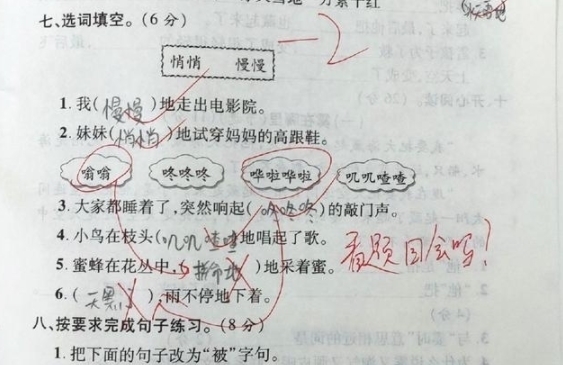 七、选词填空。(6分)
-2
悄悄 慢慢
1. 我(慢慢)地走出电影院。
2. 妹妹(悄悄)地试穿妈妈的高跟鞋。
嗡嗡 咚咚咚 哗啦哗啦 叽叽喳喳
3. 大家都睡着了,突然响起(咚咚咚)的敲门声。
4. 小鸟在枝头(叽叽喳喳)地唱起了歌。
5. 蜜蜂在花丛中(拚命地)地采着蜜。
看题目会吗?
6. (天黑),雨不停地下着。
八、按要求完成句子练习。(8分)
1. 把下面的句子改为“被”字句。